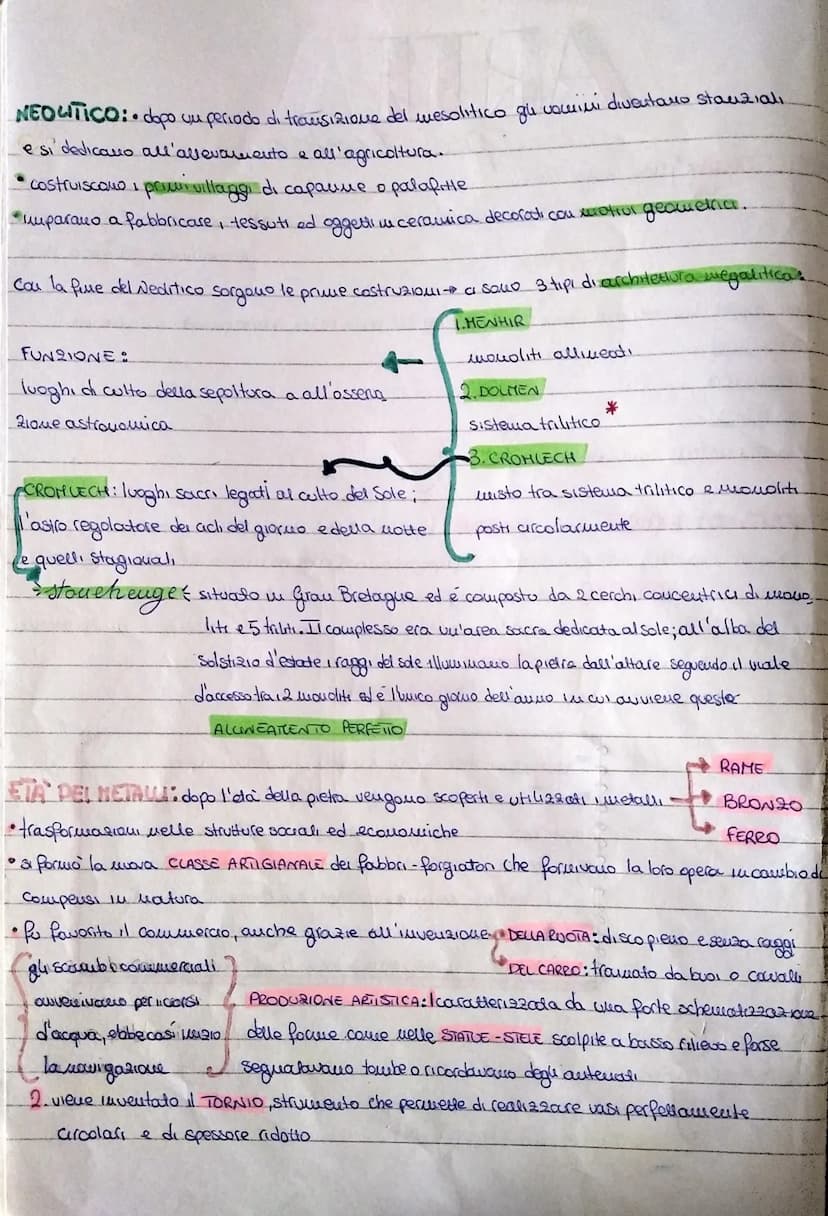 NEOLITICO: • dopo un periodo di transizione del mesolitico gli uomini diventano stanziali
e si dedicano all'allevamento e all'agricoltura.
• costruiscono i primi villaggi di capanne o palafitte
• imparano a fabbricare i tessuti ed oggetti in ceramica decorati con motivi geometrici.
Con la fine del Neolitico sorgono le prime costruzioni → ci sono 3 tipi di architettura megalitica:
1. MENHIR
monoliti allineati
2. DOLMEN
sistema trilitico *
3. CROMLECH
misto tra sistema trilitico e monoliti
posti circolarmente
FUNZIONE:
luoghi di culto della sepoltura a all'osserva
zione astronomica
CROMLECH: luoghi sacri legati al culto del Sole;
l'astro regolatore dei cicli del giorno e della notte
e quelli stagionali
→ stonehenge: situato in Gran Bretagne ed é composto da 2 cerchi concentrici di mono
liti e 5 triliti. Il complesso era un'area sacra dedicata al sole; all'alba del
solstizio d'estate i raggi del sole illuminano la pietra dall'altare seguendo il viale
d'accesso tra i 2 monoliti ed é l'unico giorno dell'anno in cui avviene questo
ALLINEAMENTO PERFETTO
ETA' DEI METALLI: dopo l'età della pietra vengono scoperti e utilizzati i metalli
→ RAME
→ BRONZO
→ FERRO
• trasformazioni nelle strutture sociali ed economiche
• si formò la nuova CLASSE ARTIGIANALE dei fabbri-forgiatori che fornivano la loro opera in cambio di
compensi in natura
• fu favorito il commercio, anche grazie all'invenzione • DELLA RUOTA: disco pieno e senza raggi
DEL CARRO: trainato da buoi o cavalli
gli scambi commerciali
avvenivano per i corsi
d'acqua, ebbe così inizio
la navigazione
PRODUZIONE ARTISTICA: 1 caratterizzata da una forte schematizzazione
delle forme come nelle STATUE-STELE scolpite a basso rilievo e forse
segnalavano tombe o ricordavano degli antenati
2. viene inventato il TORNIO, strumento che permette di realizzare vasi perfettamente
circolari e di spessore ridotto